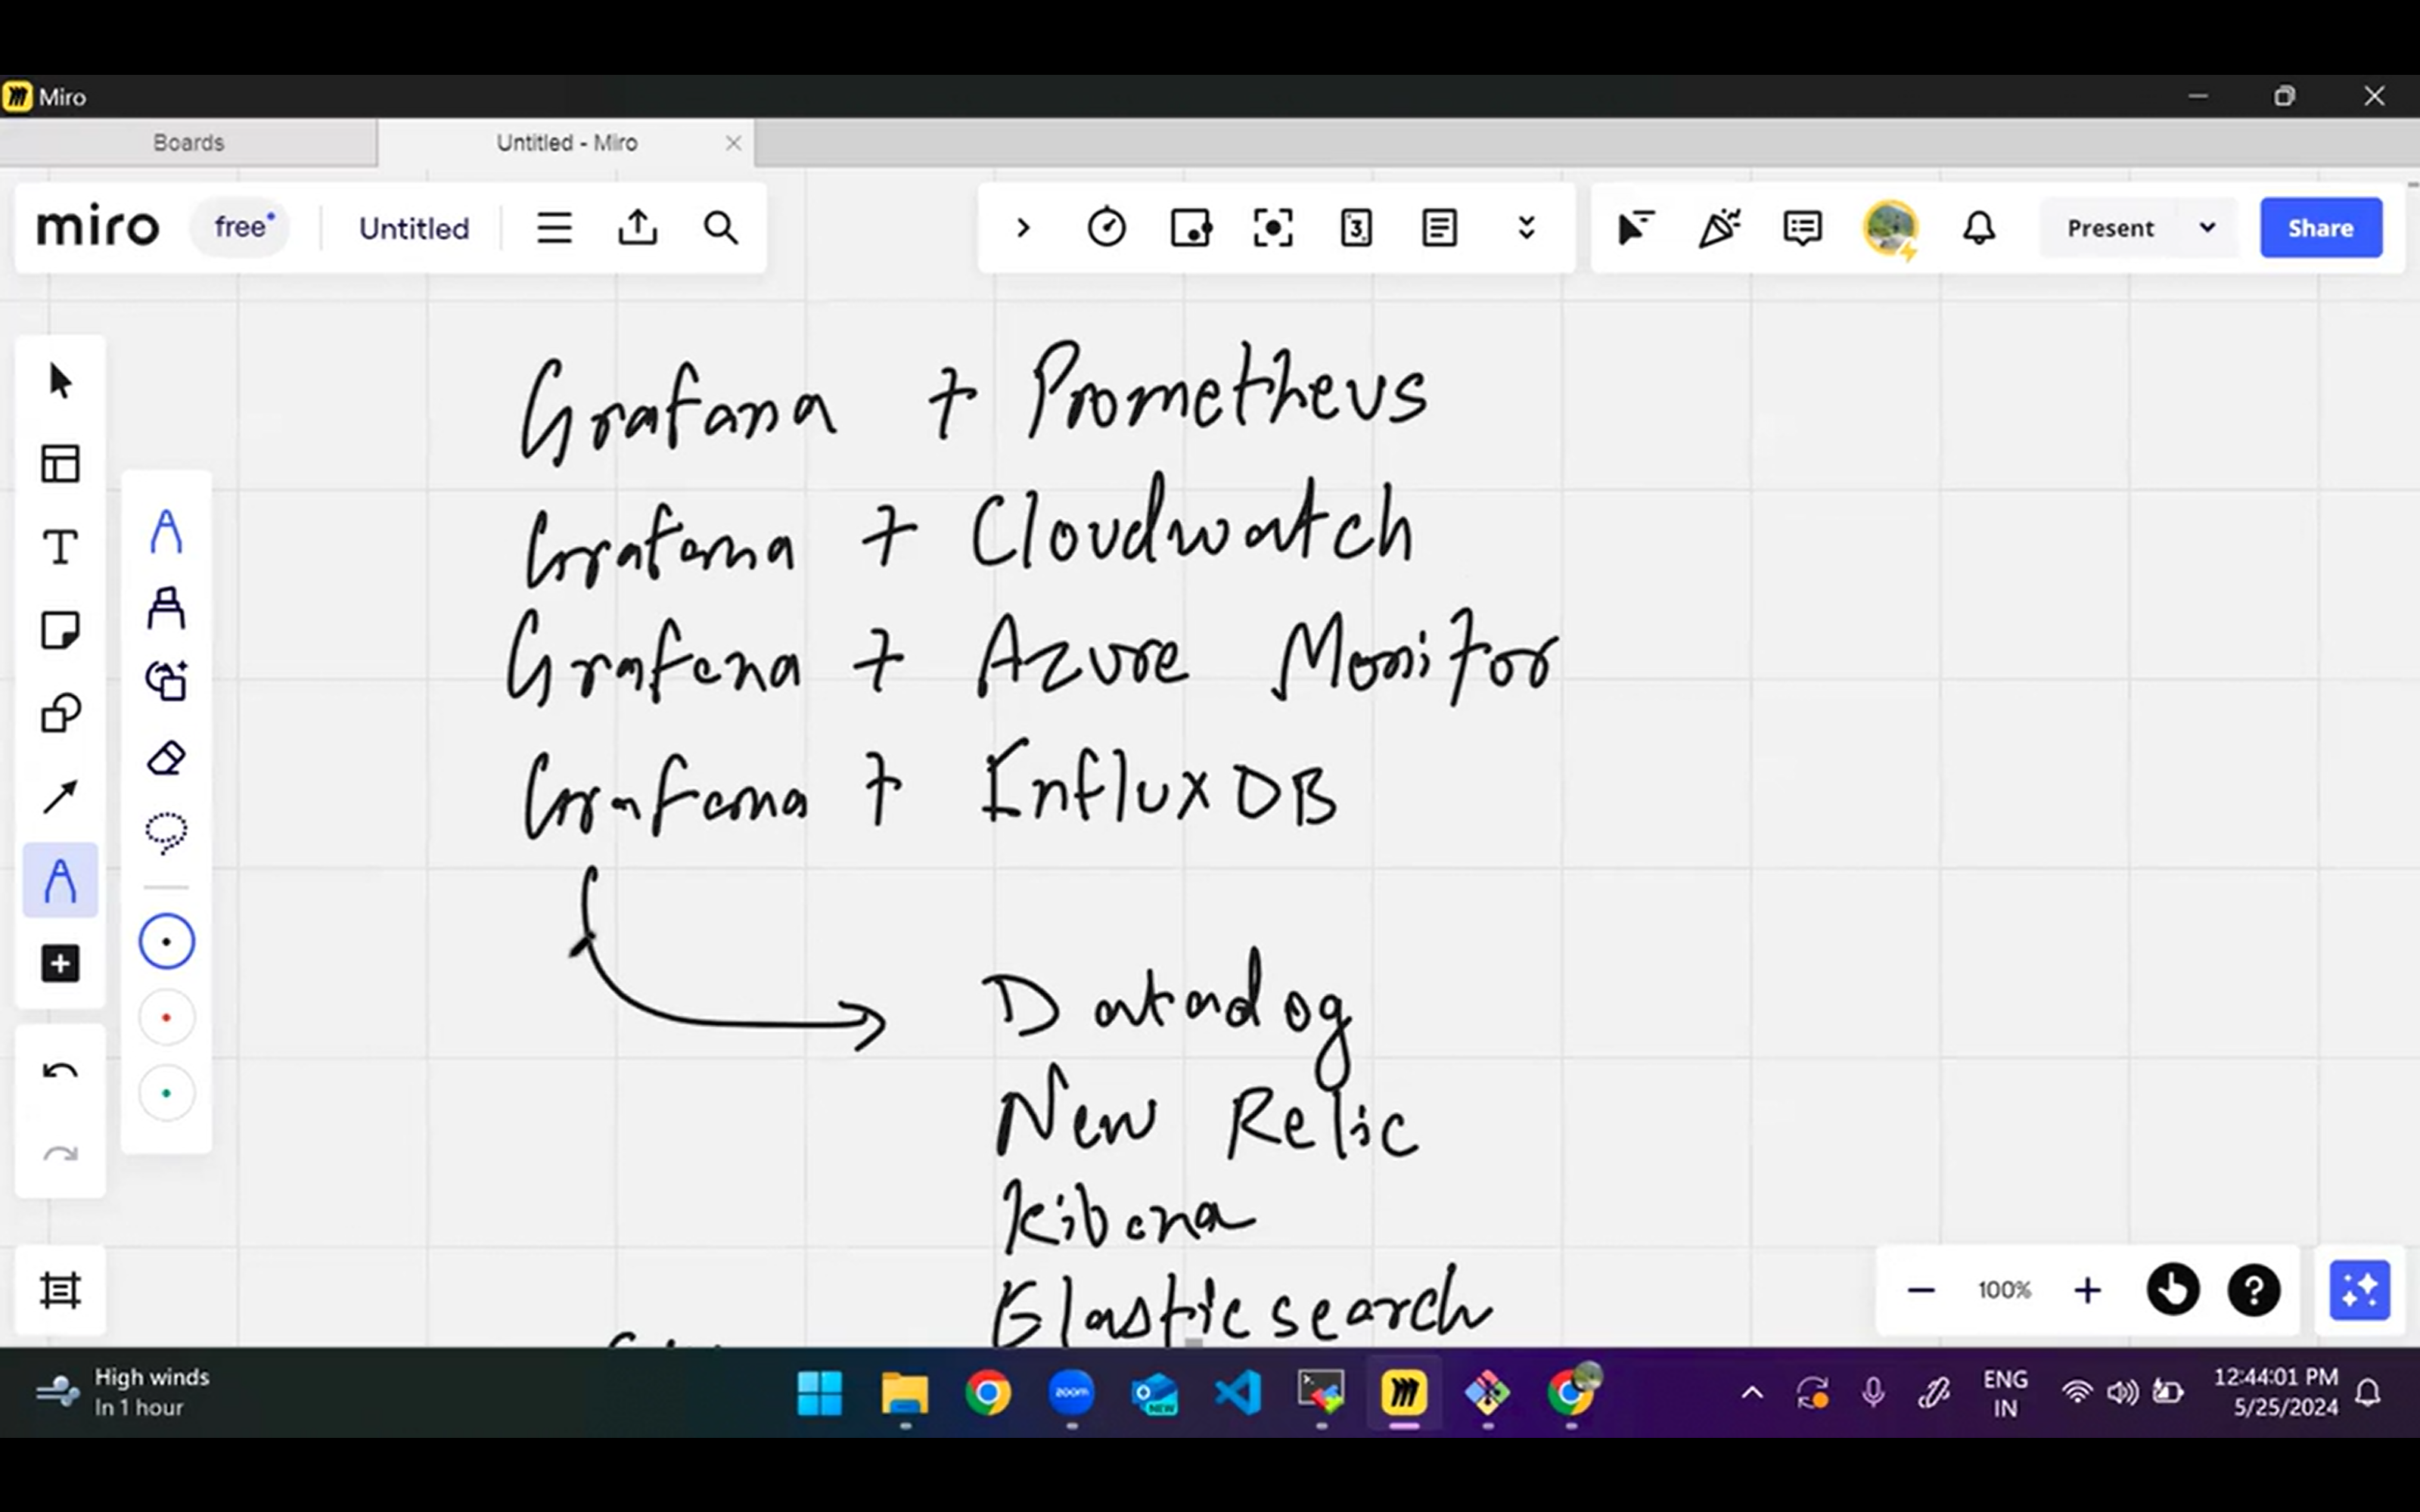 Miro
Boards
Untitled - Miro
miro free Untitled
3
Present
Share
Grafana + Prometheus
Grafana + Cloudwatch
Grafana + Azure Monitor
Grafana + InfluxDB
Datadog
New Relic
Kibana
Elasticsearch
100%
High winds
In 1 hour
zoom
NEW
ENG
IN
12:44:01 PM
5/25/2024